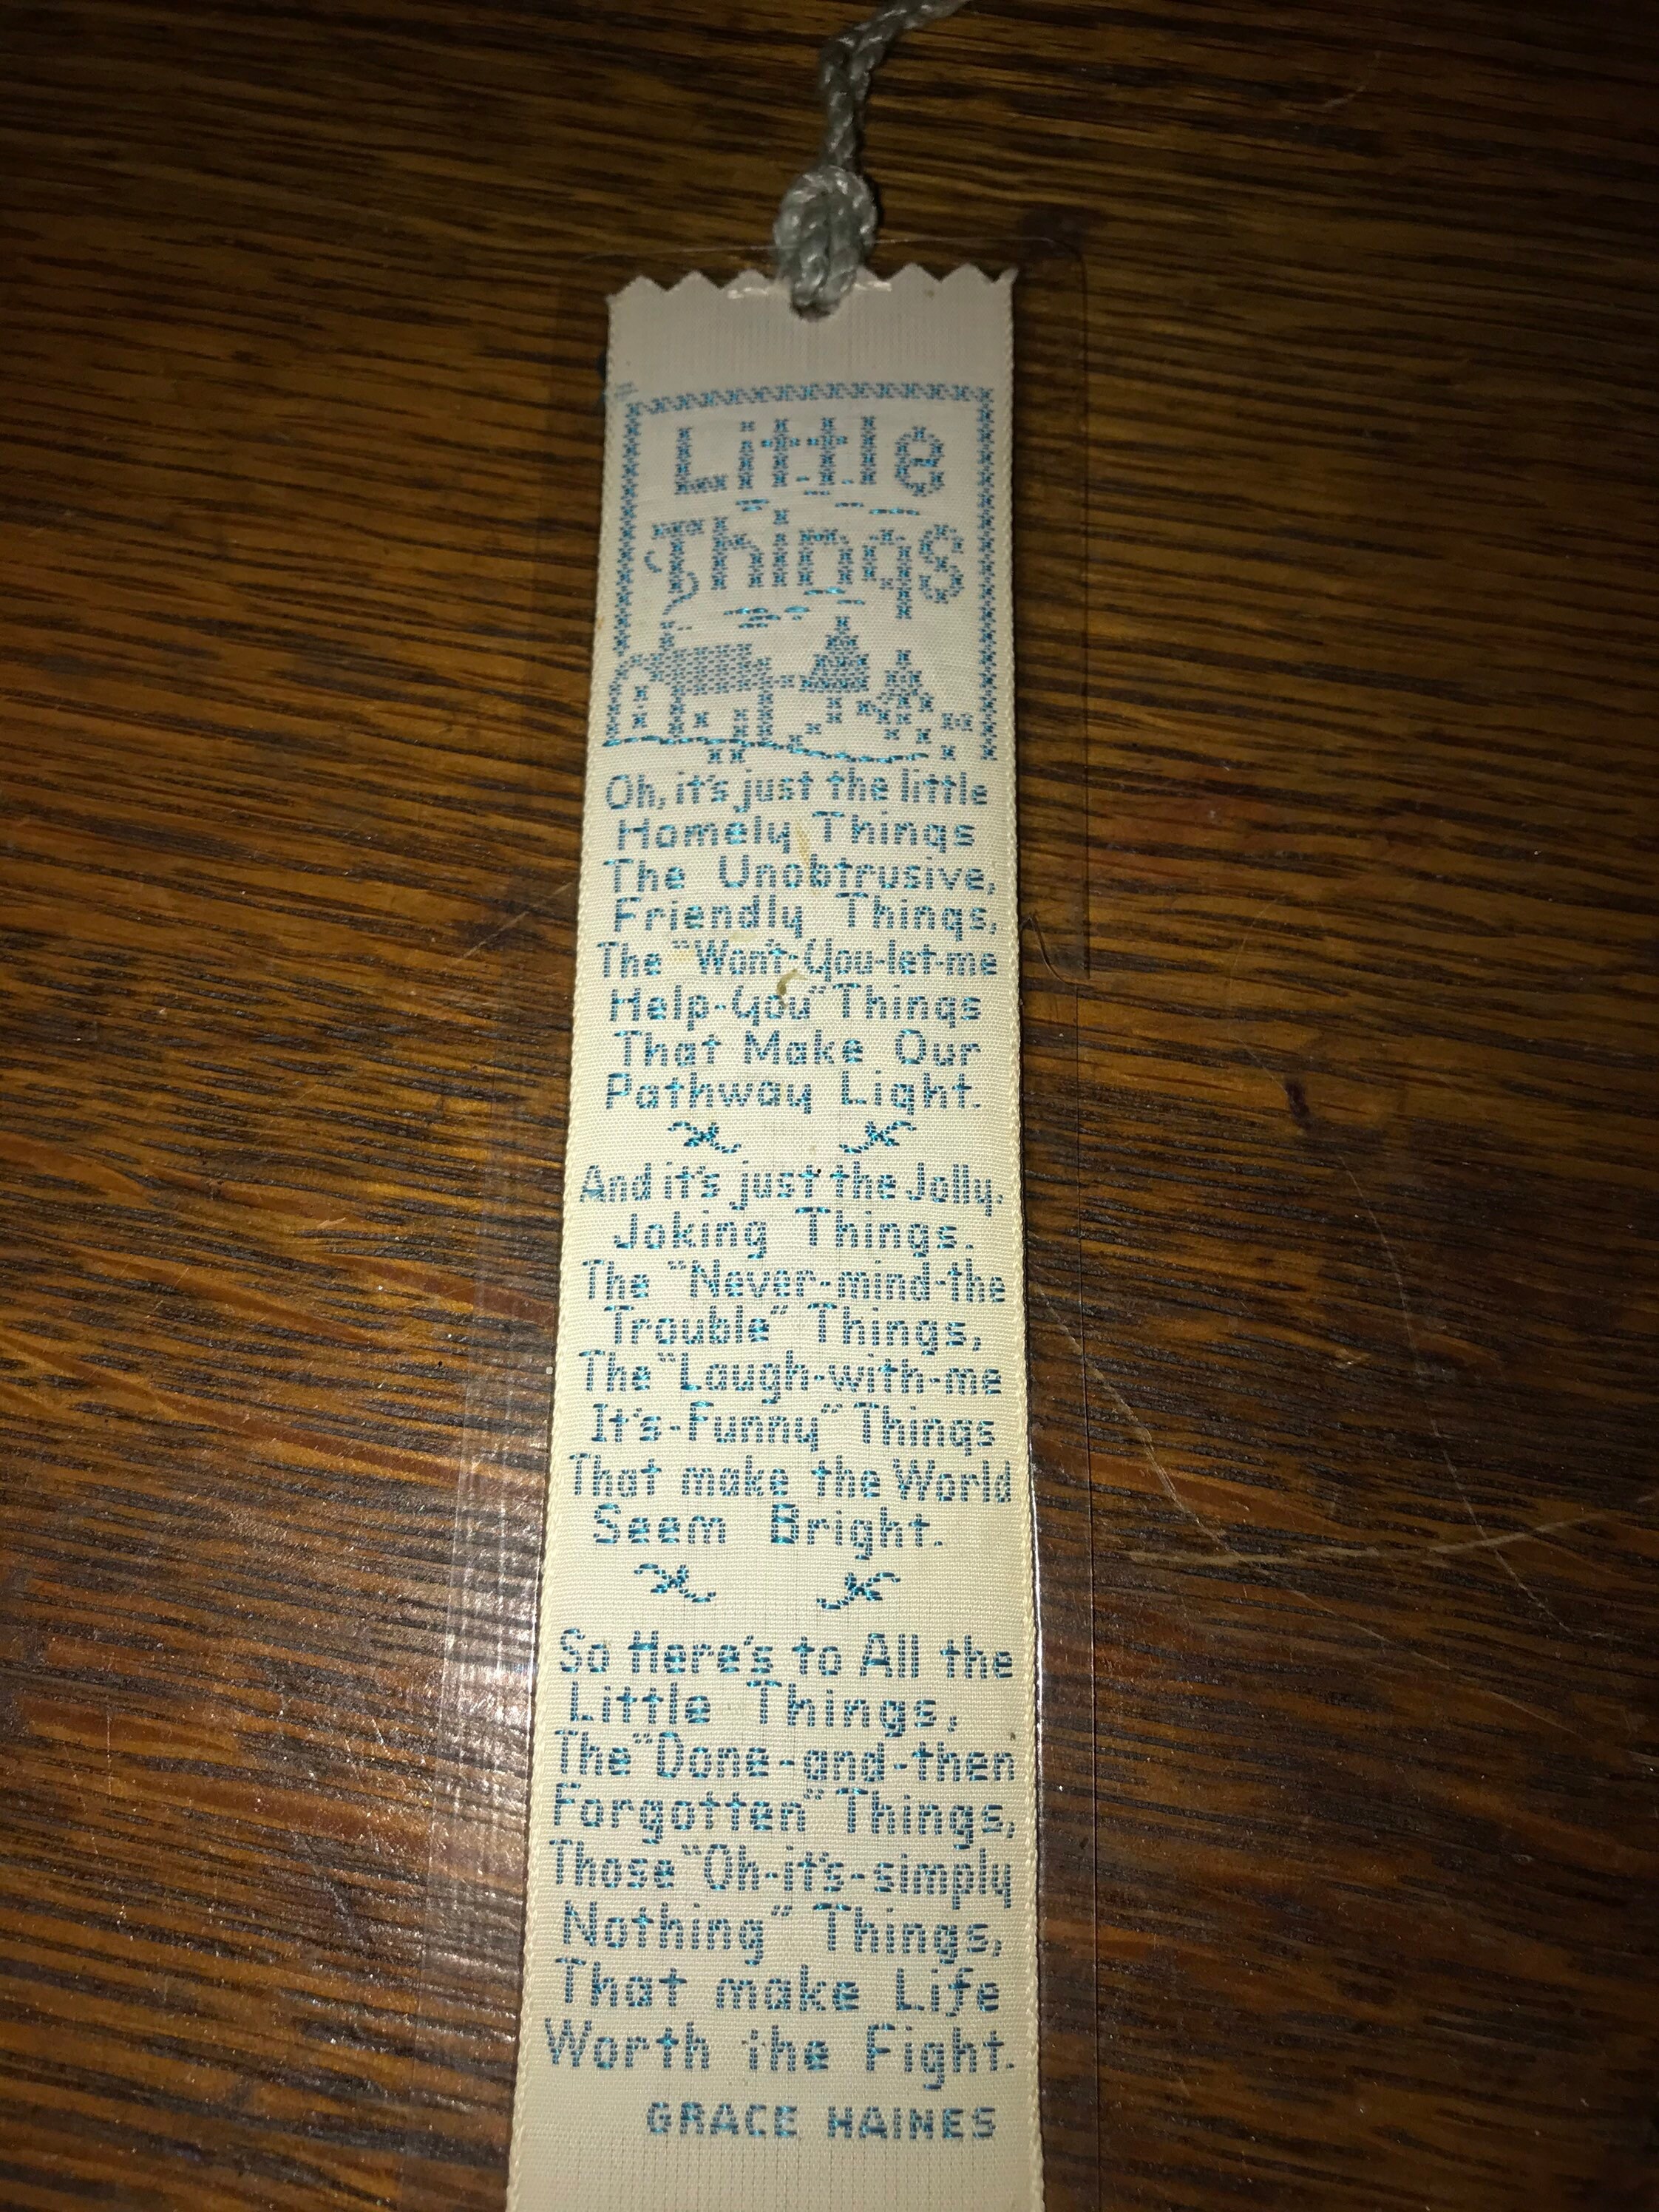 Little
Things
Oh, it's just the little
Homely Things
The Unobtrusive,
Friendly Things,
The "Won't-You-let-me
Help-You" Things
That Make Our
Pathway Light.
And it's just the Jolly,
Joking Things,
The "Never-mind-the
Trouble" Things,
The "Laugh-with-me
It's-Funny" Things
That make the World
Seem Bright.
So Here's to All the
Little Things,
The "Done-and-then
Forgotten" Things,
Those "Oh-it's-simply
Nothing" Things,
That make Life
Worth the Fight.
GRACE HAINES